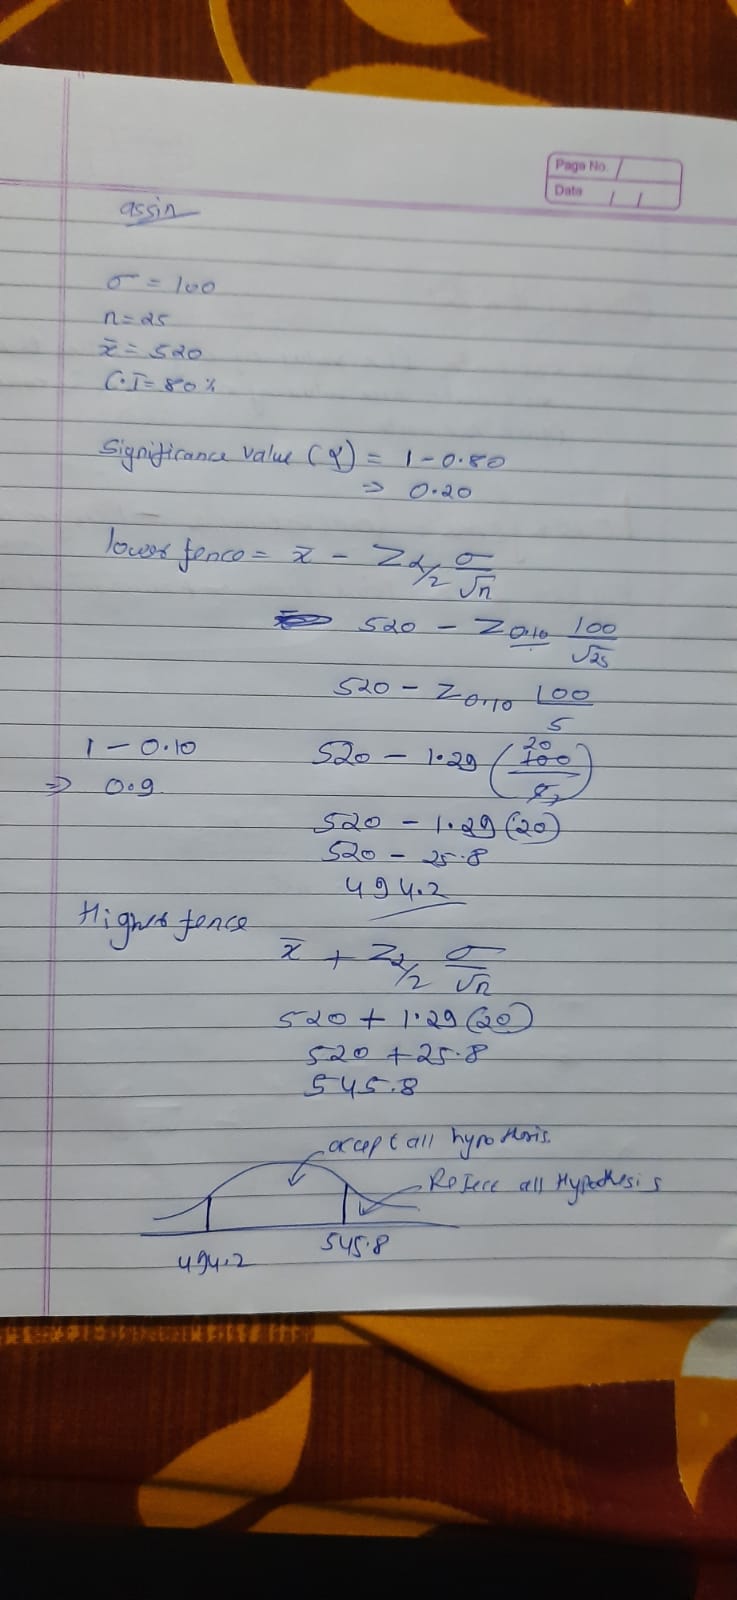 Page No.
Date / /
assin
σ = 100
n = 25
x̄ = 520
C.I = 80%
Significance value (α) = 1 - 0.80
⇒ 0.20
lower fence = x̄ - Zα/2 σ/√n
520 - Z0.10 100/√25
520 - Z0.10 100/5
1 - 0.10
⇒ 0.9
520 - 1.29 (20 100/5)
520 - 1.29 (20)
520 - 25.8
494.2
Higher fence
x̄ + Zα/2 σ/√n
520 + 1.29 (20)
520 + 25.8
545.8
accept all hypothesis.
Reject all Hypothesis
494.2
545.8